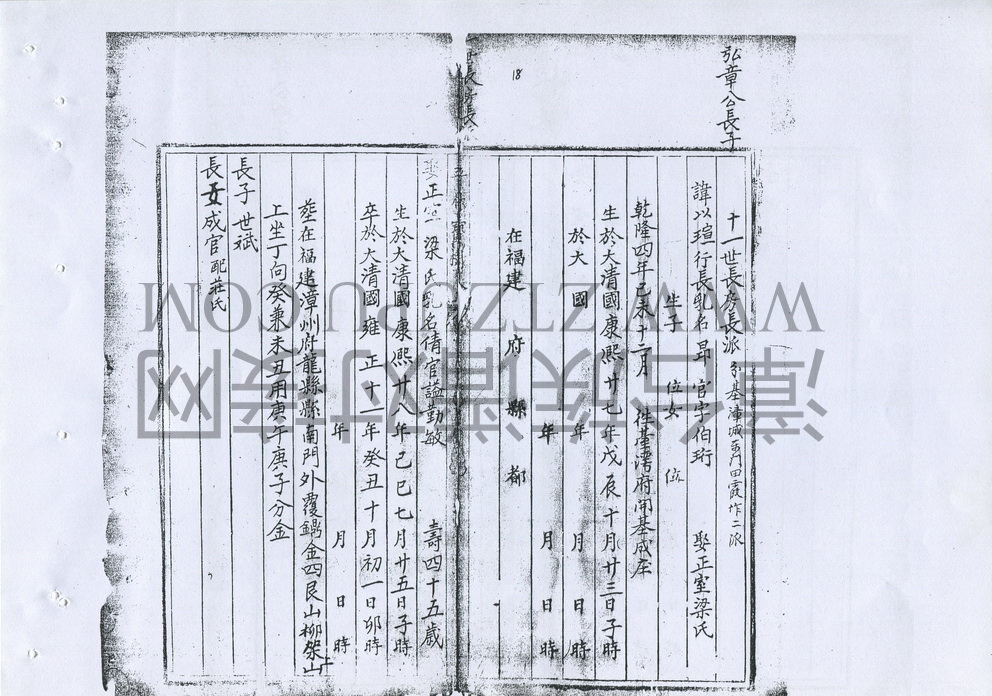 弘章公長子
18
十一世長房長派 分基漳城東門田霞作二派
諱以瑄行長乳名昴官字伯珩 娶正室梁氏
生子 位女 位
乾隆四年己未十二月 往臺湾府開基成庄
生於大清國康熙廿七年戊辰十月廿三日子時
於大 國 年 月 日 時
年 月 日 時
在福建 府 縣 都
長房長
娶正室 梁氏乳名倩官謚勤敏 壽四十五歲
生於大清國康熙廿八年己巳七月廿五日子時
卒於大清國雍正十一年癸丑十月初一日卯時
年 月 日 時
塟在福建漳州府龍縣縣南門外覆鐤金四艮山柳桀山
上坐丁向癸兼未丑用庚午庚子分金
長子世斌
長女成官配莊氏
漳台族谱对接网
WWW.ZTZUPU.COM